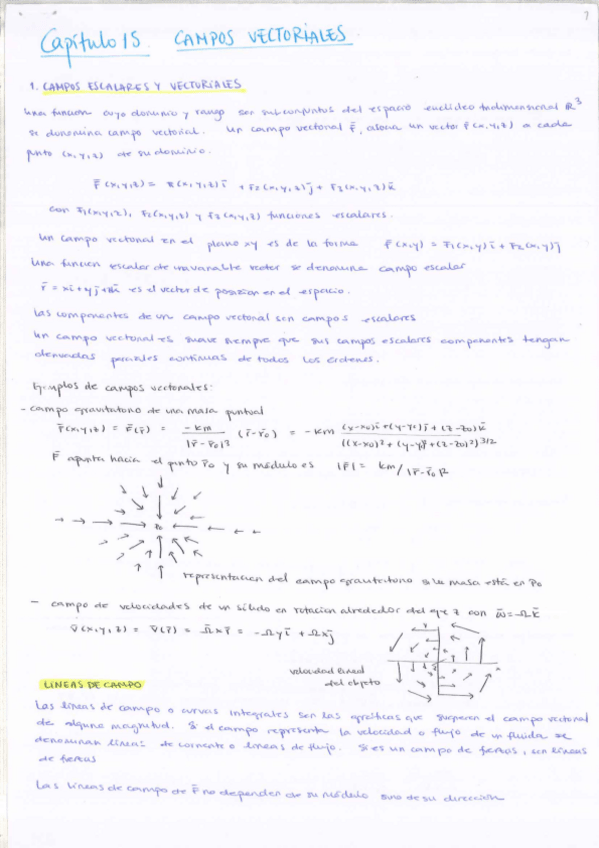 Capítulo 15. CAMPOS VECTORIALES
1. CAMPOS ESCALARES Y VECTORIALES
Una funcion cuyo dominio y rango son subconjuntos del espacio euclideo tridimensional R³
se denomina campo vectorial. Un campo vectorial F̄, asocia un vector F̄(x,y,z) a cada
punto (x,y,z) de su dominio.
F̄(x,y,z) = F1(x,y,z)ī + F2(x,y,z)j̄ + F3(x,y,z)k̄
con F1(x,y,z), F2(x,y,z) y F3(x,y,z) funciones escalares.
Un campo vectorial en el plano xy es de la forma F̄(x,y) = F1(x,y)ī + F2(x,y)j̄
Una funcion escalar de una variable vector se denomina campo escalar
r̄ = xī + yj̄ + zk̄ es el vector de posicion en el espacio.
Las componentes de un campo vectorial son campos escalares
Un campo vectorial es suave siempre que sus campos escalares componentes tengan
derivadas parciales continuas de todos los órdenes.
Ejemplos de campos vectoriales:
- campo gravitatorio de una masa puntual
F̄(x,y,z) = F̄(r̄) = -km/|r̄-r̄0|³ (r̄-r̄0) = -km (x-x0)ī+(y-y0)j̄+(z-z0)k̄/((x-x0)²+(y-y0)²+(z-z0)²)^3/2
F̄ apunta hacia el punto r̄0 y su módulo es |F̄| = km/|r̄-r̄0|²
P0
representacion del campo gravitatorio si la masa está en P0
- campo de velocidades de un sólido en rotacion alrededor del eje z con ω̄=Ωk̄
v̄(x,y,z) = v̄(r̄) = Ω̄xr̄ = -Ωyī + Ωxj̄
velocidad lineal
del objeto
LINEAS DE CAMPO
Las líneas de campo o curvas integrales son las gráficas que sugieren el campo vectorial
de alguna magnitud. Si el campo representa la velocidad o flujo de un fluido se
denominan líneas de corriente o lineas de flujo. Si es un campo de fuerzas, son líneas
de fuerzas
Las líneas de campo de F̄ no dependen de su módulo sino de su dirección